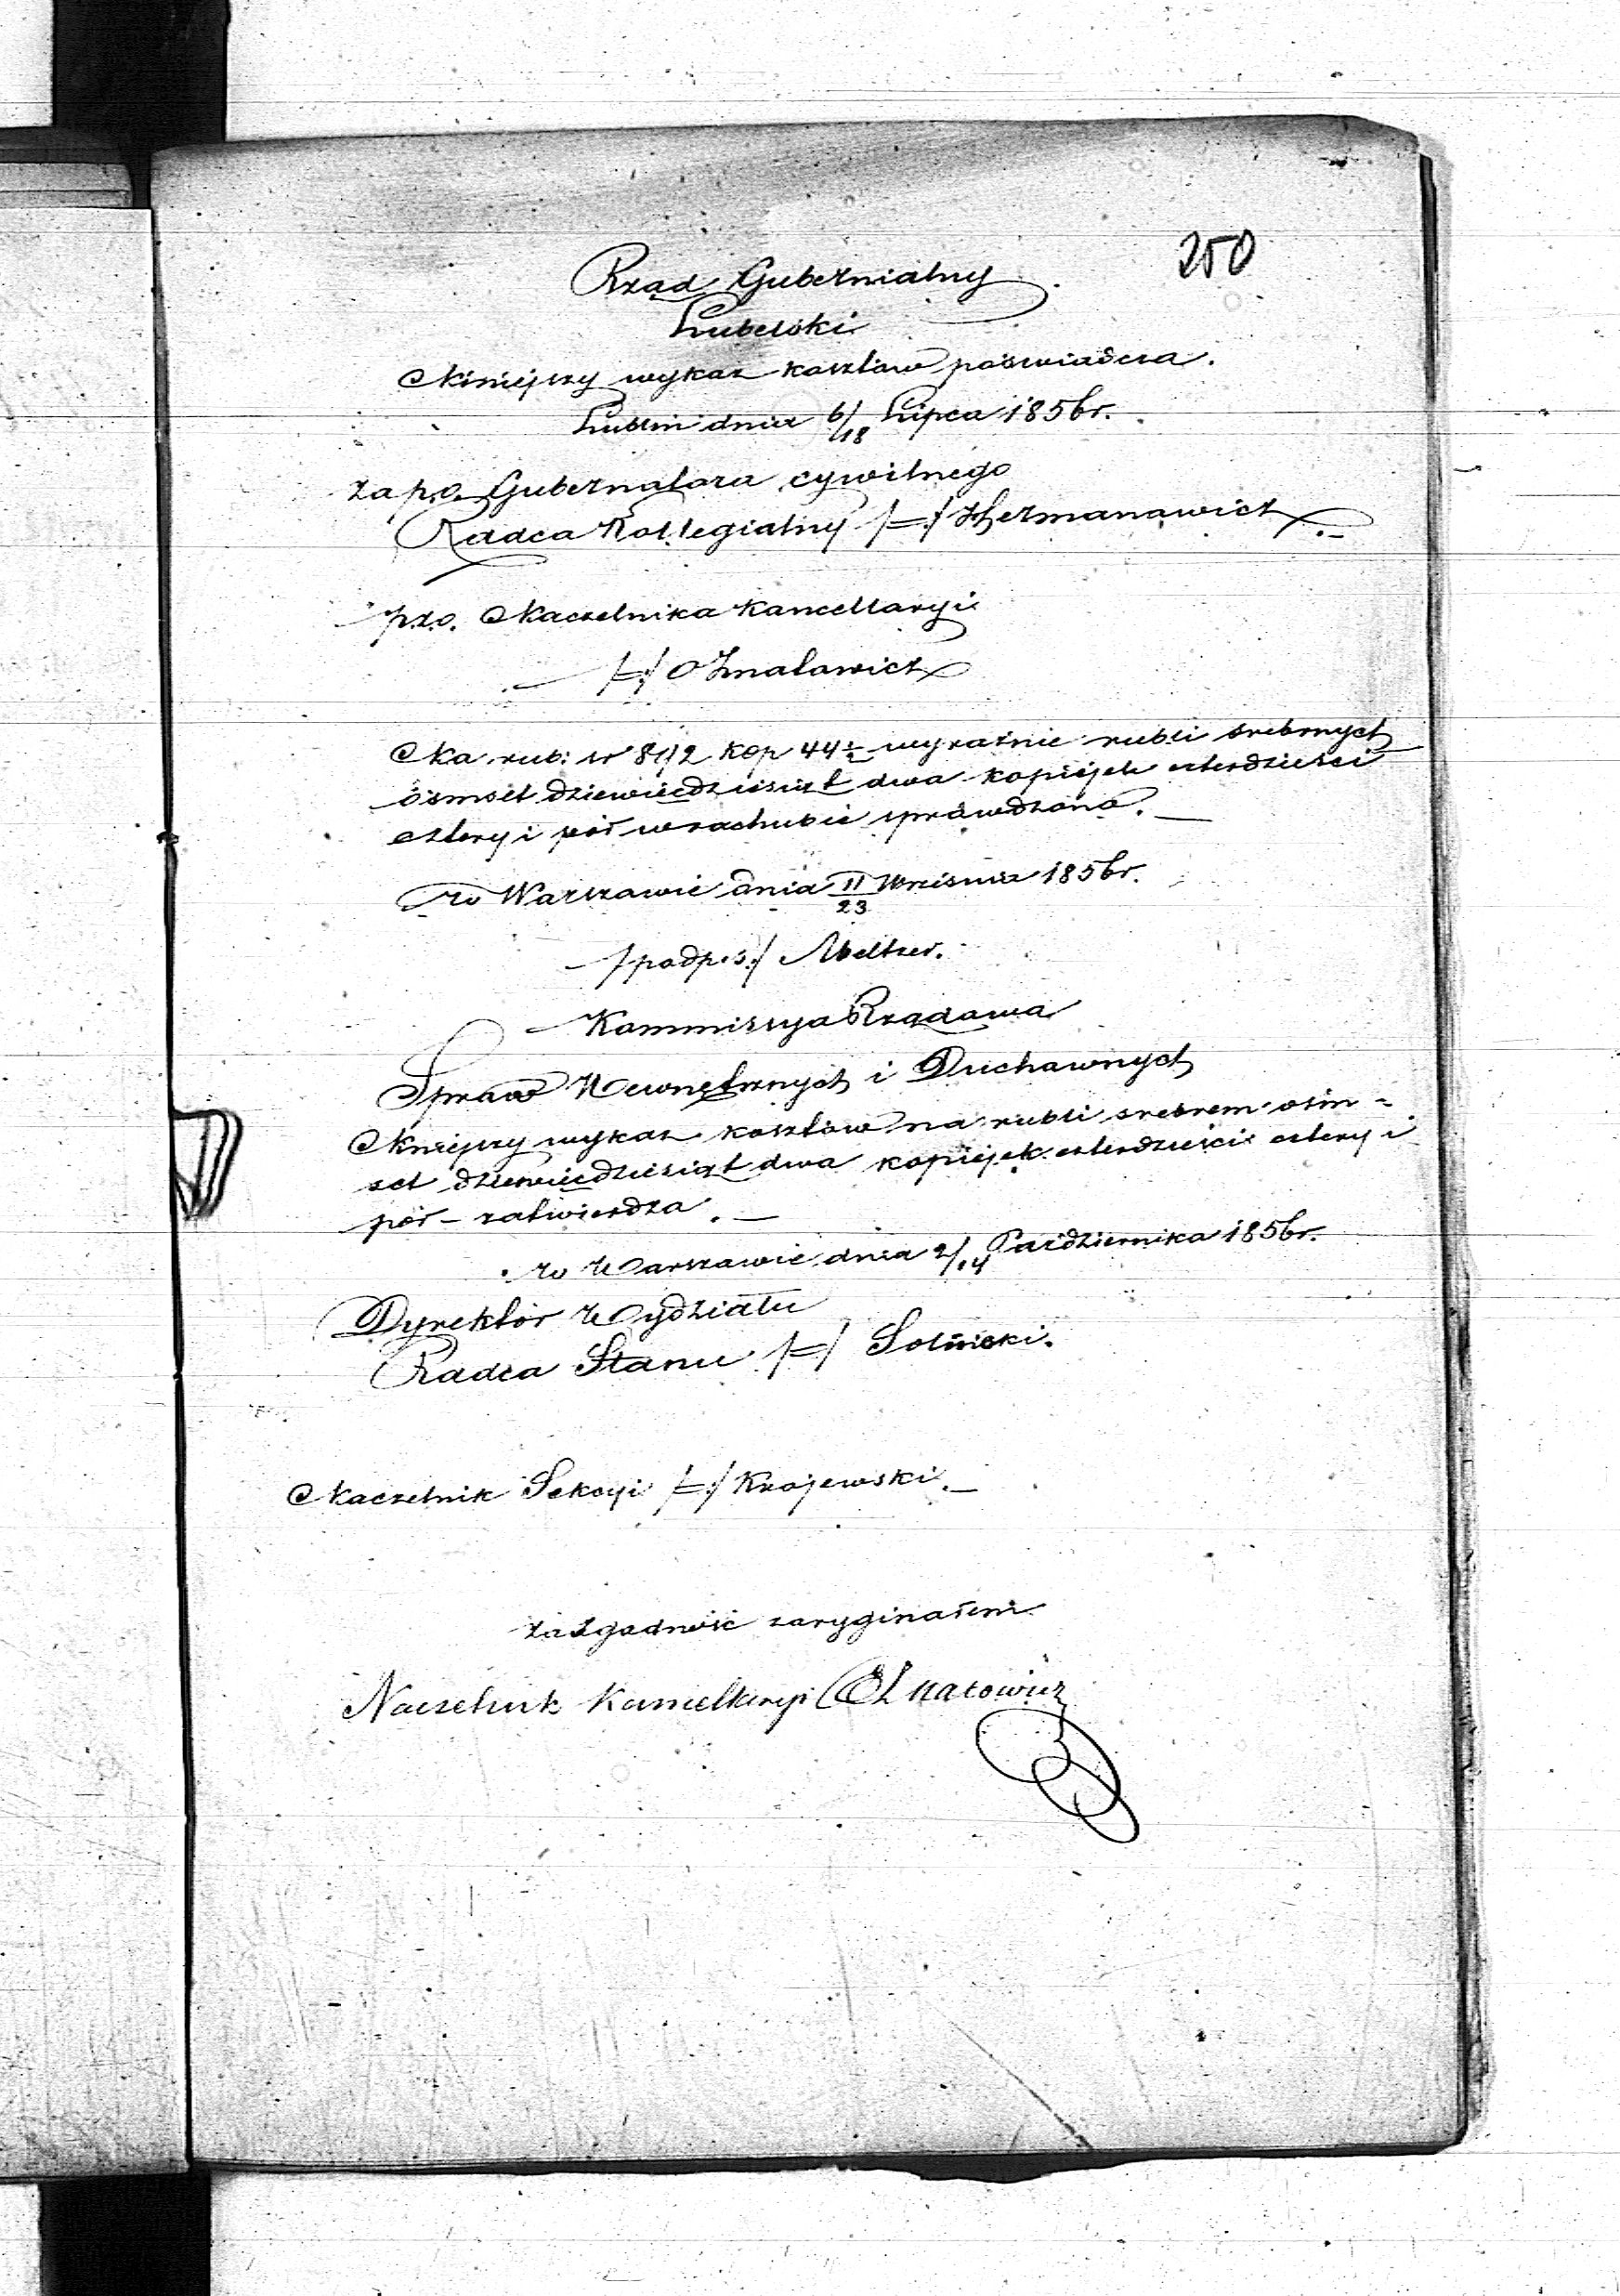 250
Rząd Gubernialny
Lubelski
Niniejszy wykaz kosztów poświadcza.
Lublin dnia 6/18 Lipca 1856 r.
za p.o. Gubernatora cywilnego
Radca Kollegialny /=/ Hermanowicz
p.o. Naczelnika Kancellaryi
/=/ Ignatowicz
Na rub: sr 892 kop 44½ wyraźnie rubli srebrnych
ośmset dziewięćdziesiąt dwa kopiejek czterdzieści
cztery i pół w rachubie sprawdzono.
w Warszawie dnia 11/23 Września 1856 r.
/podpis:/ Meltzer.
Kommissya Rządowa
Spraw Wewnętrznych i Duchownych
Niniejszy wykaz kosztów na rubli srebrem ośm-
set dziewięćdziesiąt dwa kopiejek czterdzieści cztery i
pół – zatwierdza.
w Warszawie dnia 2/14 Października 1856 r.
Dyrektor Wydziału
Radca Stanu /=/
Naczelnik Sekcyi /=/ Krajewski.
za zgodność z oryginałem
Naczelnik Kancellaryi